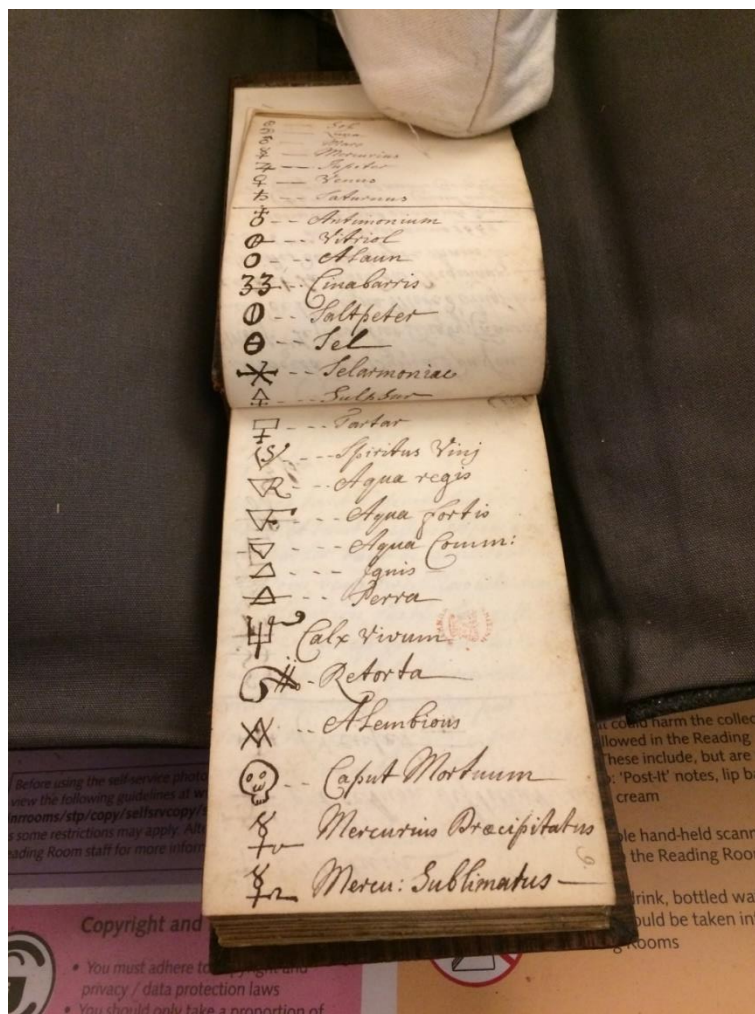 Sol
Luna
Mars
Mercurius
Jupiter
Venus
Saturnus
Antimonium
Vitriol
Alaun
Cinabarris
Saltpeter
Sel
Selarmoniac
Sulphur
Tartar
Spiritus Vinj
Aqua regis
Aqua fortis
Aqua Comm:
Ignis
Terra
Calx Vivum
Retorta
Alembicus
Caput Mortuum
Mercurius Præcipitatus
Mercu: Sublimatus
9.
Before using the self-service photo
view the following guidelines at w
nrooms/stp/copy/selfsrvcopy/s
s some restrictions may apply. Alt
eading Room staff for more inform
Copyright and
• You must adhere to copyright and
privacy / data protection laws
• You should only take a proportion of
t could harm the collec
llowed in the Reading
These include, but are
: 'Post-It' notes, lip ba
cream
le hand-held scann
the Reading Roo
drink, bottled wa
ould be taken in
g Rooms